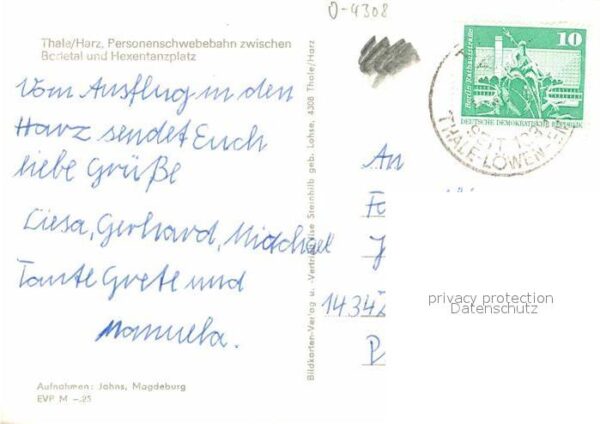 O-4308
Thale/Harz, Personenschwebebahn zwischen
Bodetal und Hexentanzplatz
10
Berlin Rathausstraße
DEUTSCHE DEMOKRATISCHE REPUBLIK
THALE-LÖWEN
Vom Ausflug in den
Harz sendet Euch
liebe Grüße
Liesa, Gerhard, Michael
Tante Grete und
Manuela.
Bildkarten-Verlag u. -Vertrieb Ilse Steinhilb geb. Lohse, 4308 Thale/Harz
An
F
J
1434
P
privacy protection
Datenschutz
Aufnahmen: Johns, Magdeburg
EVP M -.25